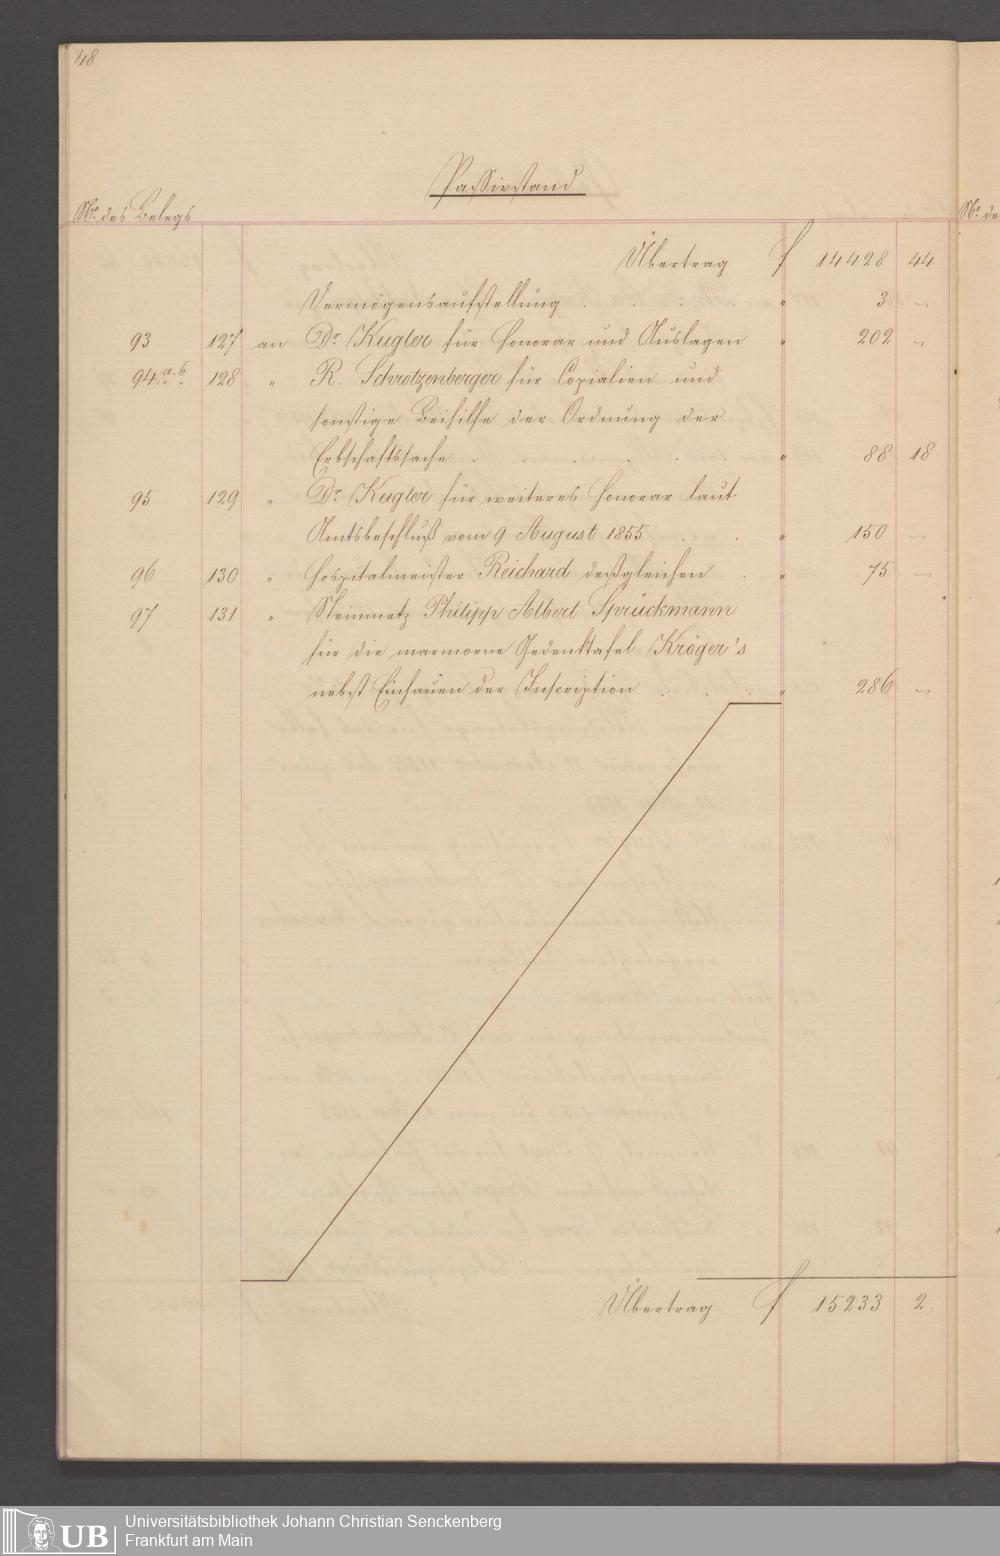 48
Passivstand
No. des Belegs
No. de
Übertrag f 14428 44
Vermögensaufstellung . . . . " 3 –
93 127 an Dr. Kugler für Honorar und Auslagen " 202 –
94 a. b. 128 " R. Schratzenberger für Copialien und
sonstige Beihilfe der Ordnung der
Erbschaftssache . . . . . " 88 18
95 129 " Dr. Kugler für weiteres Honorar laut
Amtsbeschluß vom 9 August 1855 . . " 150 –
96 130 " Hospitalmeister Reichard deßgleichen . " 75 –
97 131 " Steinmetz Philipp Albert Sprückmann
für die marmorne Gedenktafel Kröger's
nebst Einhauen der Inscription . . . " 286 –
Übertrag f 15233 2.
UB
Universitätsbibliothek Johann Christian Senckenberg
Frankfurt am Main